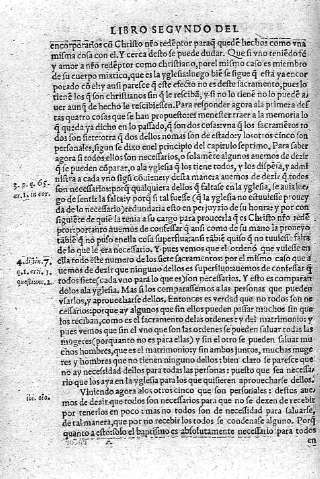 LIBRO SEGVNDO DEL
encorporarlos cō Christo nřo redẽptor paraq̃ quedẽ hechos como vna
misma cosa con el. Y cerca desto se puede dudar. Que si vno teniẽdo fe
y amor a nřo redẽptor como christiano, por el mismo caso es miembro
de su cuerpo mixtico, que es la yglesia: luego biẽ se sigue q̃ esta ya encor
porado cō el: y ansi parece q̃ este efecto no es deste sacramento, pues lo
tienẽ los q̃ son christianos sin q̃ le rescibā, y si no lo tienẽ no le puedẽ a
uer aunq̃ de hecho le rescibiessen. Para responder agora ala primera des
tas quatro cosas que se han propuesto es menester traer a la memoria lo
q̃ queda ya dicho en lo passado, q̃ son dos
dos son siete: otra q̃ dos dellos nomas son de estado: y los otros cinco son
personales, segun se dixo enel principio del capitulo septimo. Para saber
agora si todos ellos son necessarios, o solamẽte algunos auemos de dezir
q̃ se pueden cōparar, o ala yglesia q̃ los tiene todos, y los dispēsa, y admi
nistra a cada vno
son necessarios: porq̃ qualquiera dellos q̃ faltase en la yglesia,
go de sentir la falta: y porq̃ si tal fuesse (q̃ la yglesia no estuuiesse prouey
da de lo necessario) redundaria esto en perjuyzio de su honra: y por con
siguiẽte de quiẽ la tenia a su cargo para proueerla q̃ es Christo nřo redẽ
ptor: por tanto auemos de confessar q̃ ansi como de su mano la proueyo
tābiẽ q̃ no puso enella cosa superflua: ansi tābiẽ quiso q̃ no tuuiesse falta
de lo que le era necessario. Y pues vemos que el ordenò que vuiesse en
ella todo este numero de los siete sacramentos: por el mismo caso que a
uemos de dezir que ninguno dellos es superfluo: auemos de confessar q̃
todos siete (cada vno para lo que es) son necessarios. Y esto es comparan
dolos ala yglesia. Mas si los comparassemos a las personas que pueden
vsarlos, y aprouecharse dellos. Entonces es verdad que no todos son ne
cessarios: porque ay algunos que sin ellos pueden passar muchos sin que
los reciban, como es el sacramento delas ordenes y del matrimonio: y
pues vemos que sin el vno que son las ordenes se pueden saluar todas las
mugeres (porque no es para ellas) y sin el otro se pueden saluar mu
chos hombres, que es el matrimonio: y sin ambos juntos, muchas muge
res y hombres que no tienen ninguno dellos: bien claro se parece que
no ay necessidad dellos para todas las personas: puesto que sea necessa
rio que los aya en la yglesia para los que quisieren aprouecharse dellos.
Viniendo agora a los otros cinco que son personales: destos aue
mos de dezir que todos son necessarios para que no se dexen de recebir
por tenerlos en poco: mas no todos son de necessidad para saluarse,
de tal manera, que por no recebir los todos se condenase alguno. Porq̃
quanto a esto: solo el baptismo es absolutamente necessario para todos
en